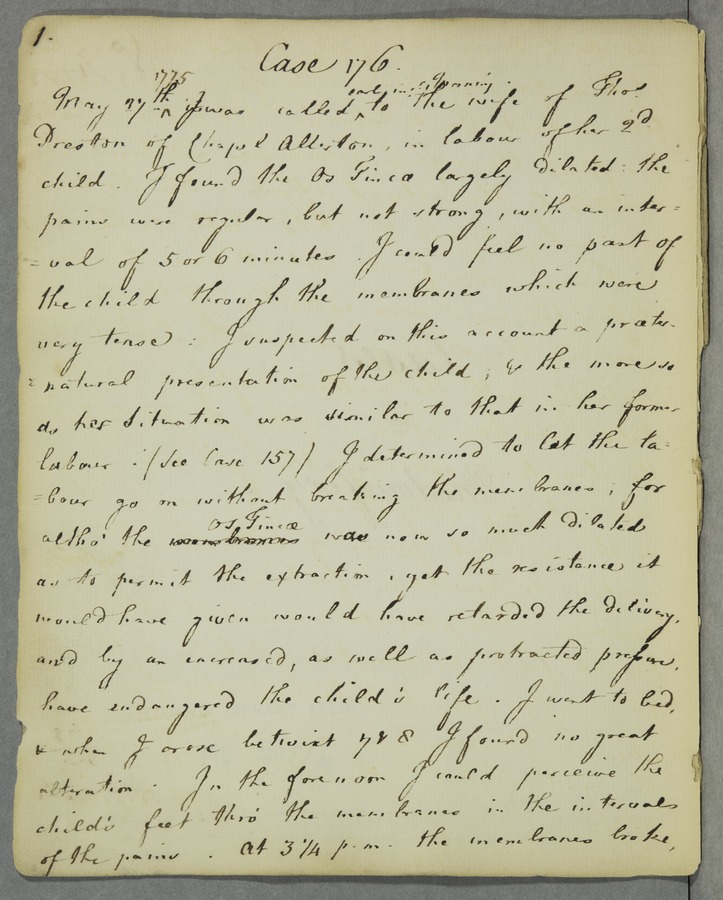 1.
Case 176.
1775
May 27th I was called early in ye morning to the wife of Thos
Preston of Chapl Allerton, in labour of her 2d
child. I found the Os Tincæ largely dilated: the
pains were regular, but not strong, with an inter=
=val of 5 or 6 minutes. I could feel no part of
the child through the membranes which were
very tense: I suspected on this account a præter-
=natural presentation of the child; & the more so
as her Situation was similar to that in her former
labour. (See Case 157) I determined to let the la=
=bour go on without breaking the membranes; for
altho' the membranes Os Tincæ was now so much dilated
as to permit the extraction, yet the resistance it
would have given would have retarded the delivery,
and by an increased, as well as protracted pressure,
have endangered the child's life. I went to bed,
& when I arose betwixt 7 & 8 I found no great
alteration. In the forenoon I could perceive the
child's feet thro' the membranes in the intervals
of the pains. At 3 1/4 p.m. the membranes broke,